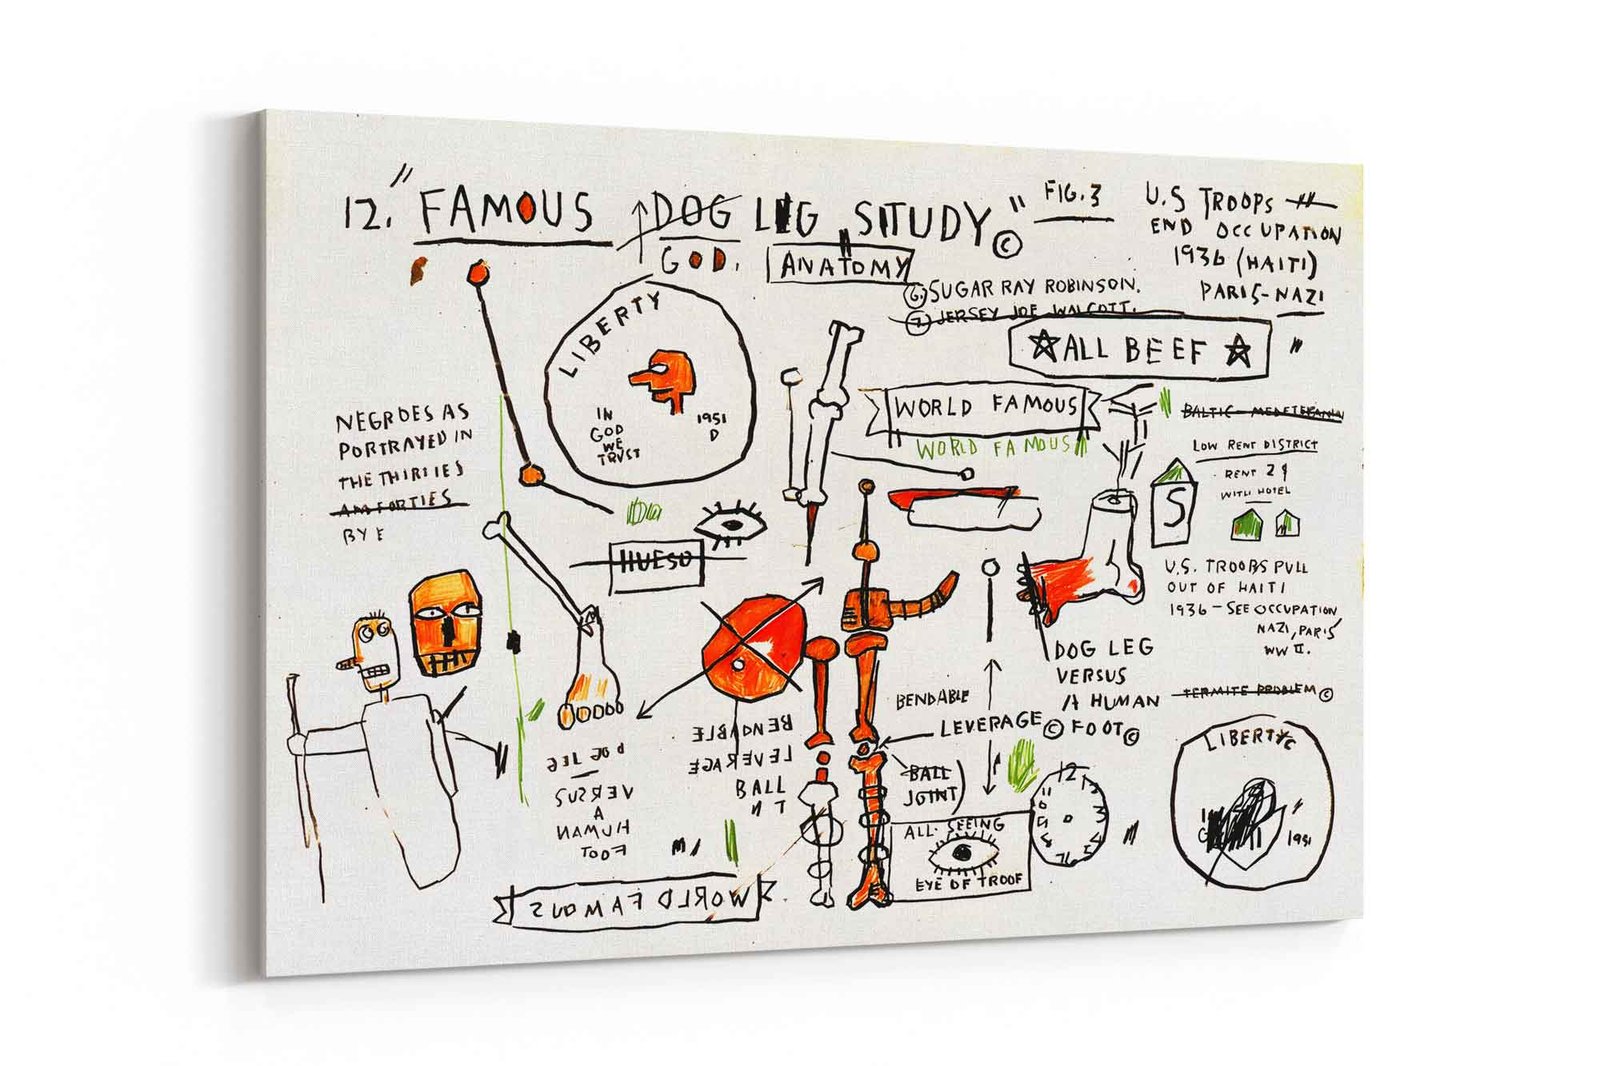 12. "FAMOUS DOG LEG STUDY" ©
GOD.
ANATOMY
FIG. 3
U.S TROOPS
END OCCUPATION
1936 (HAITI)
PARIS-NAZI
6. SUGAR RAY ROBINSON.
7. JERSEY JOE WALCOTT.
☆ALL BEEF☆
LIBERTY
IN
GOD
WE
TRUST
1951
D
WORLD FAMOUS
WORLD FAMOUS
NEGROES AS
PORTRAYED IN
THE THIRTIES
FORTIES
BY E
LOW RENT DISTRICT
RENT 29
WITH HOTEL
S
HUESO
U.S. TROOPS PULL
OUT OF HAITI
1936 - SEE OCCUPATION
NAZI, PARIS
WW II.
TERMITE PROBLEM ©
DOG LEG
VERSUS
A HUMAN
FOOT ©
BENDABLE
LEVERAGE ©
BALL
JOINT
DOG LEG
VERSUS
A
HUMAN
FOOT
BENDABLE
LEVERAGE
BALL
ALL-SEEING
EYE OF TROOF
12
LIBERTY ©
1951
WORLD FAMOUS